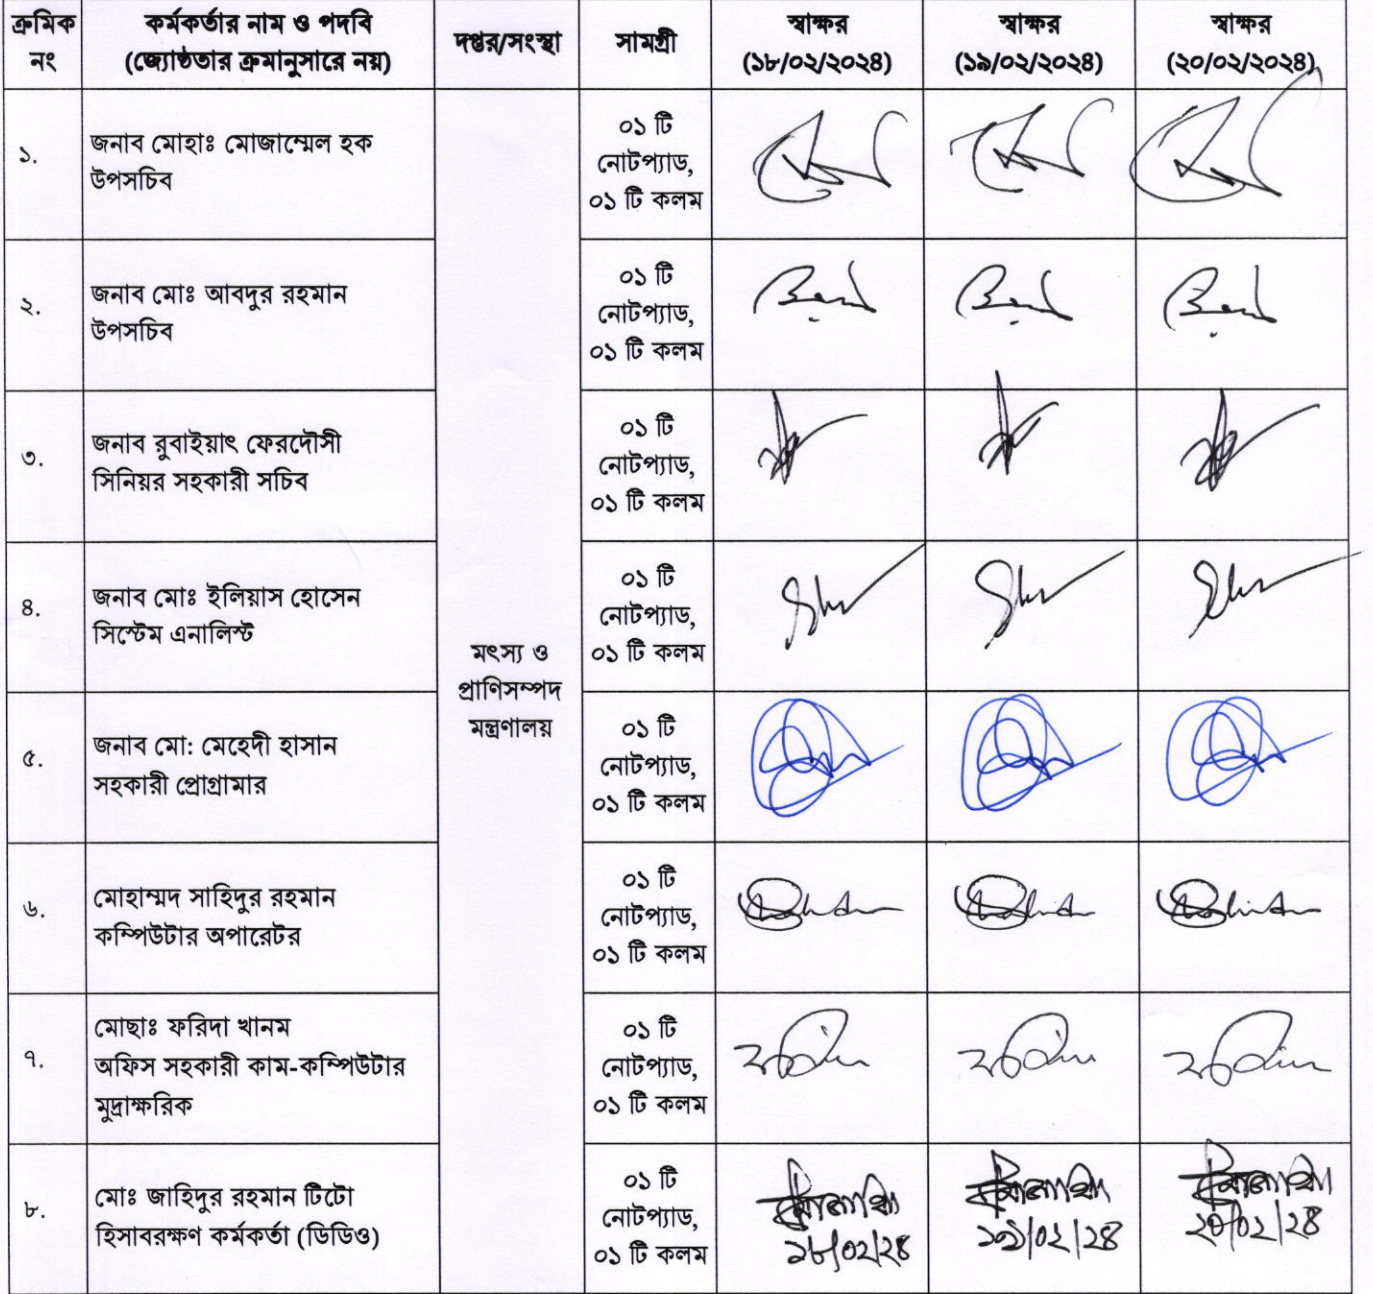 ক্রমিক নং
কর্মকর্তার নাম ও পদবি
(জ্যেষ্ঠতার ক্রমানুসারে নয়)
দপ্তর/সংস্থা
সামগ্রী
স্বাক্ষর
(১৮/০২/২০২৪)
স্বাক্ষর
(১৯/০২/২০২৪)
স্বাক্ষর
(২০/০২/২০২৪)
১.
জনাব মোহাঃ মোজাম্মেল হক
উপসচিব
০১ টি
নোটপ্যাড,
০১ টি কলম
২.
জনাব মোঃ আবদুর রহমান
উপসচিব
০১ টি
নোটপ্যাড,
০১ টি কলম
৩.
জনাব রুবাইয়াৎ ফেরদৌসী
সিনিয়র সহকারী সচিব
০১ টি
নোটপ্যাড,
০১ টি কলম
৪.
জনাব মোঃ ইলিয়াস হোসেন
সিস্টেম এনালিস্ট
মৎস্য ও
প্রাণিসম্পদ
মন্ত্রণালয়
০১ টি
নোটপ্যাড,
০১ টি কলম
৫.
জনাব মো: মেহেদী হাসান
সহকারী প্রোগ্রামার
০১ টি
নোটপ্যাড,
০১ টি কলম
৬.
মোহাম্মদ সাহিদুর রহমান
কম্পিউটার অপারেটর
০১ টি
নোটপ্যাড,
০১ টি কলম
৭.
মোছাঃ ফরিদা খানম
অফিস সহকারী কাম-কম্পিউটার
মুদ্রাক্ষরিক
০১ টি
নোটপ্যাড,
০১ টি কলম
৮.
মোঃ জাহিদুর রহমান টিটো
হিসাবরক্ষণ কর্মকর্তা (ডিডিও)
০১ টি
নোটপ্যাড,
০১ টি কলম
১৮/০২/২৪
১৯/০২/২৪
২০/০২/২৪